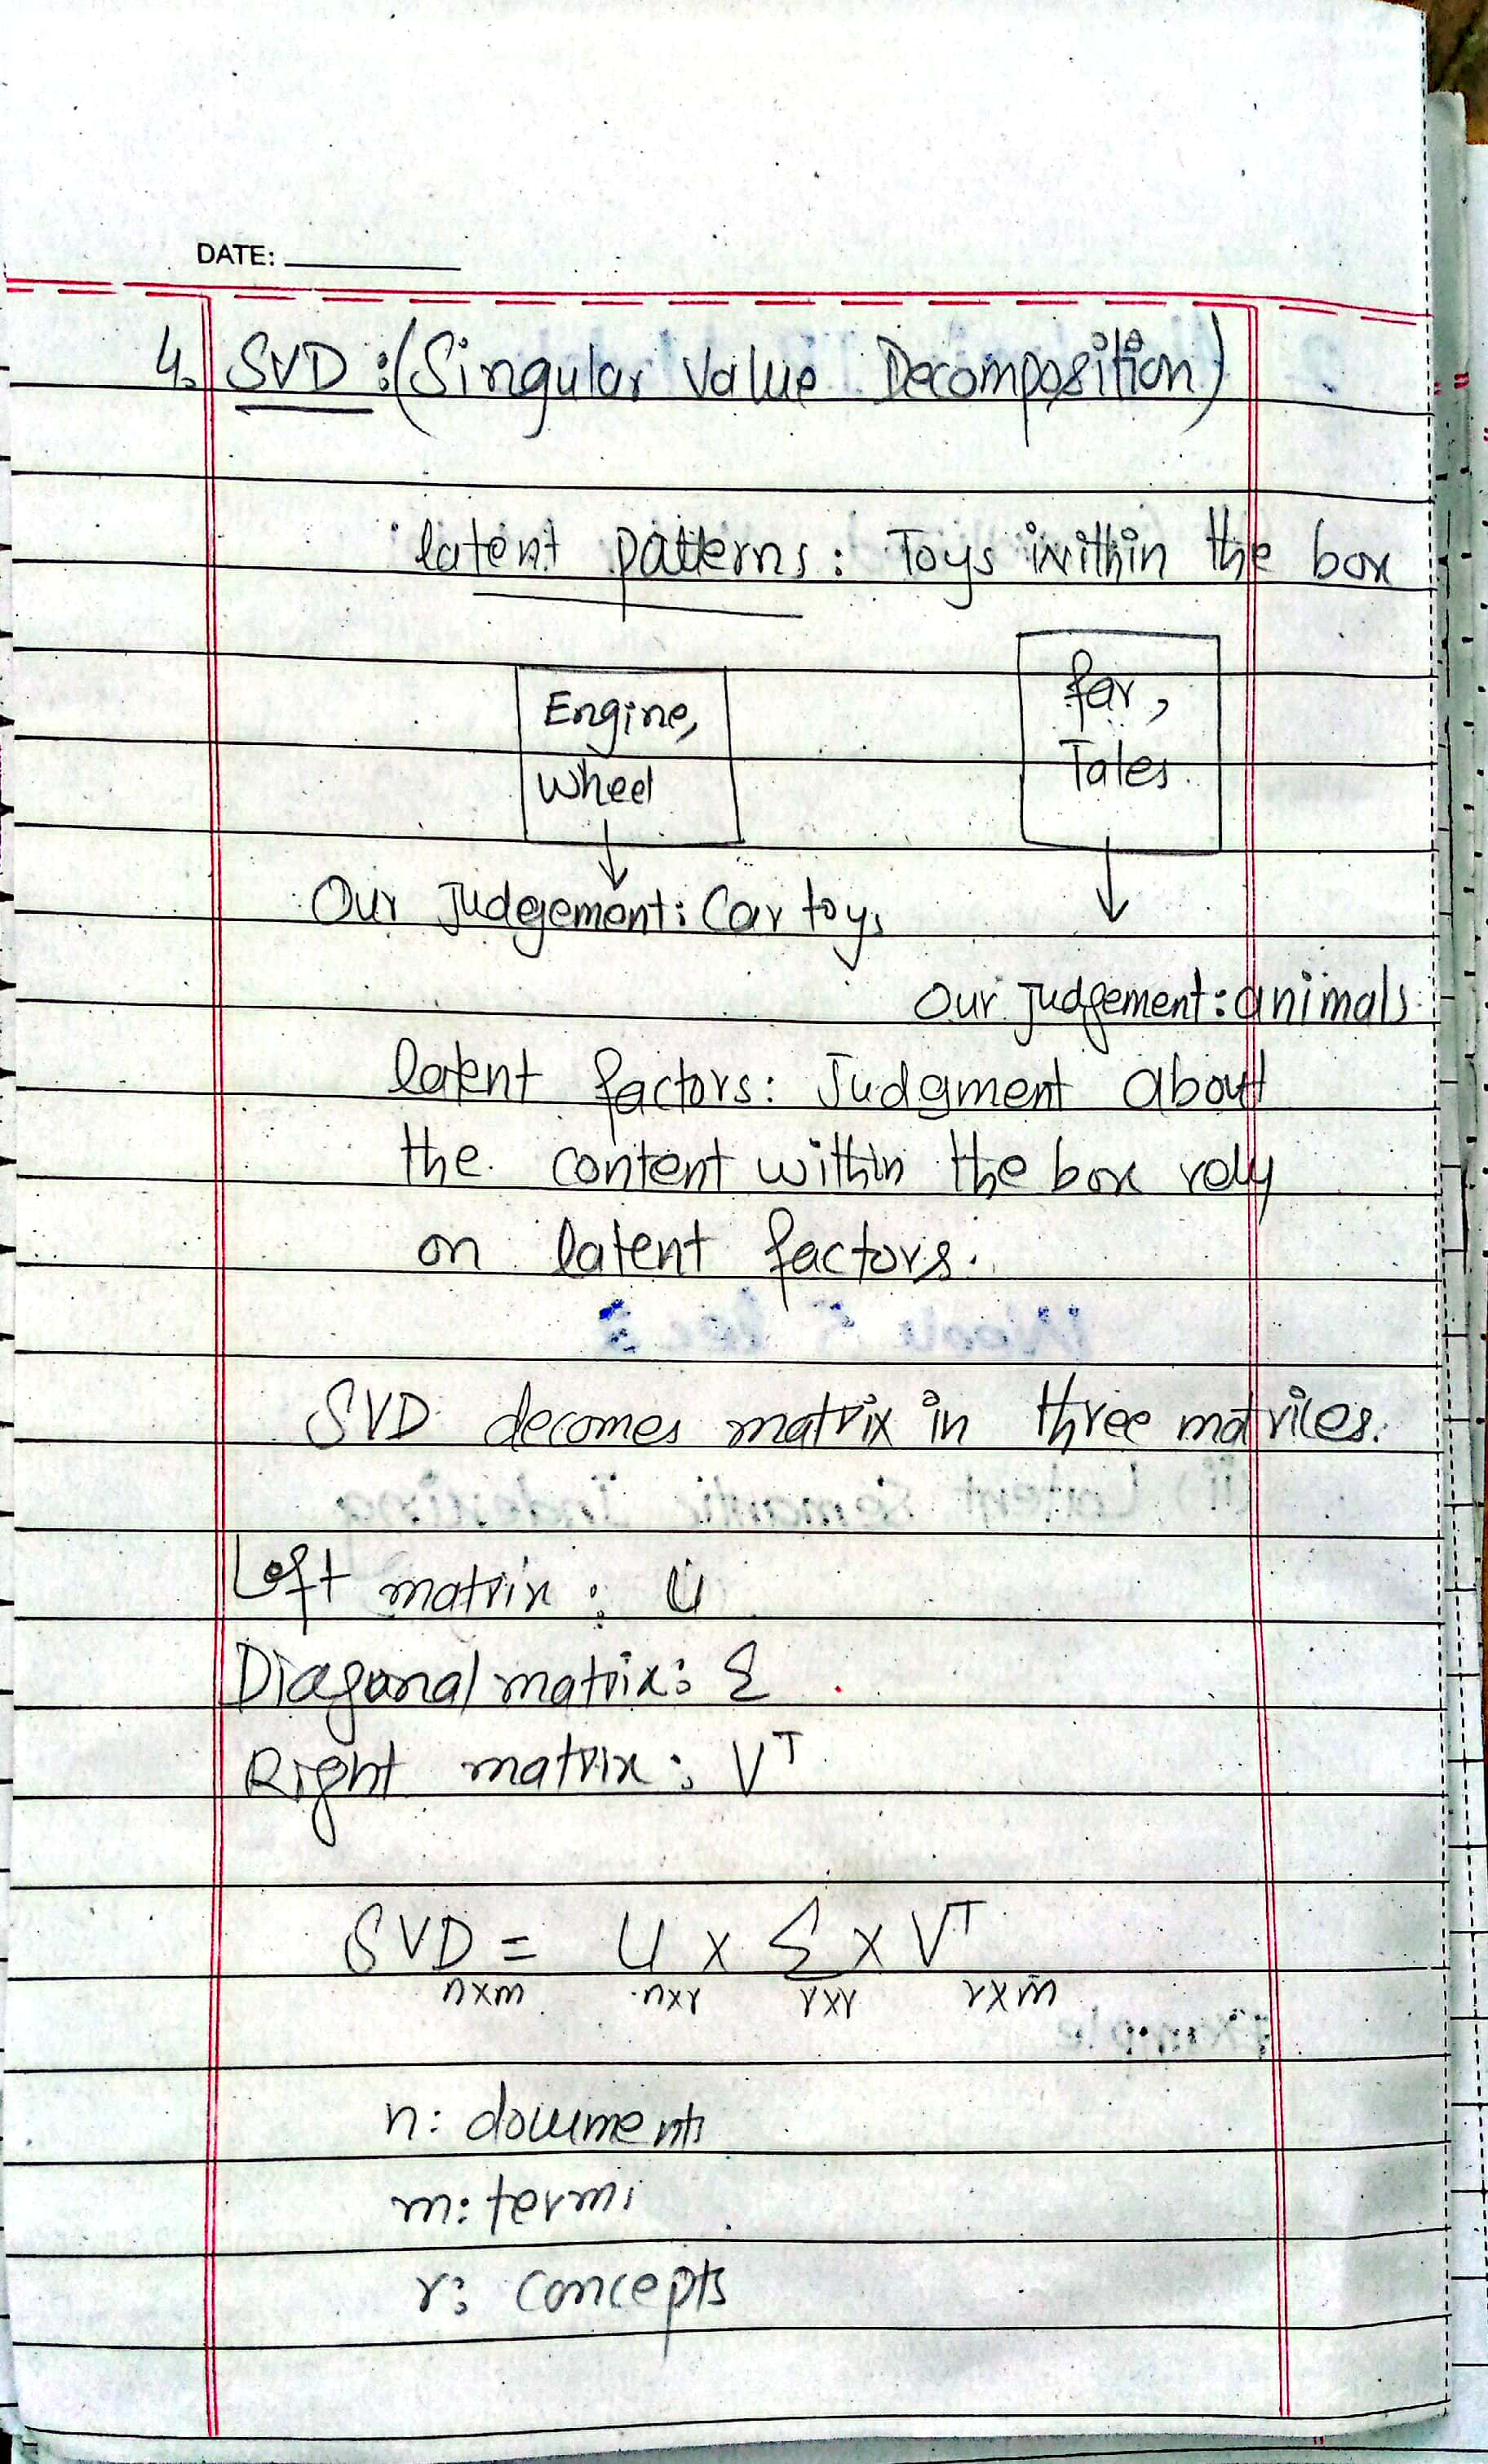 DATE:
4. SVD :(Singular Value Decomposition)
latent patterns : Toys within the box
Engine,
Wheel
far,
Tales
Our Judgement: Car toys
Our Judgement: animals
latent factors: Judgment about
the content within the box rely
on latent factors.
SVD decomes matrix in three matrices.
Left matrix : U
Diagonal matrix: Σ
Right matrix : Vᵀ
SVD = U x Σ x Vᵀ
nxm nxr rxr rxm
n: documents
m: terms
r: concepts